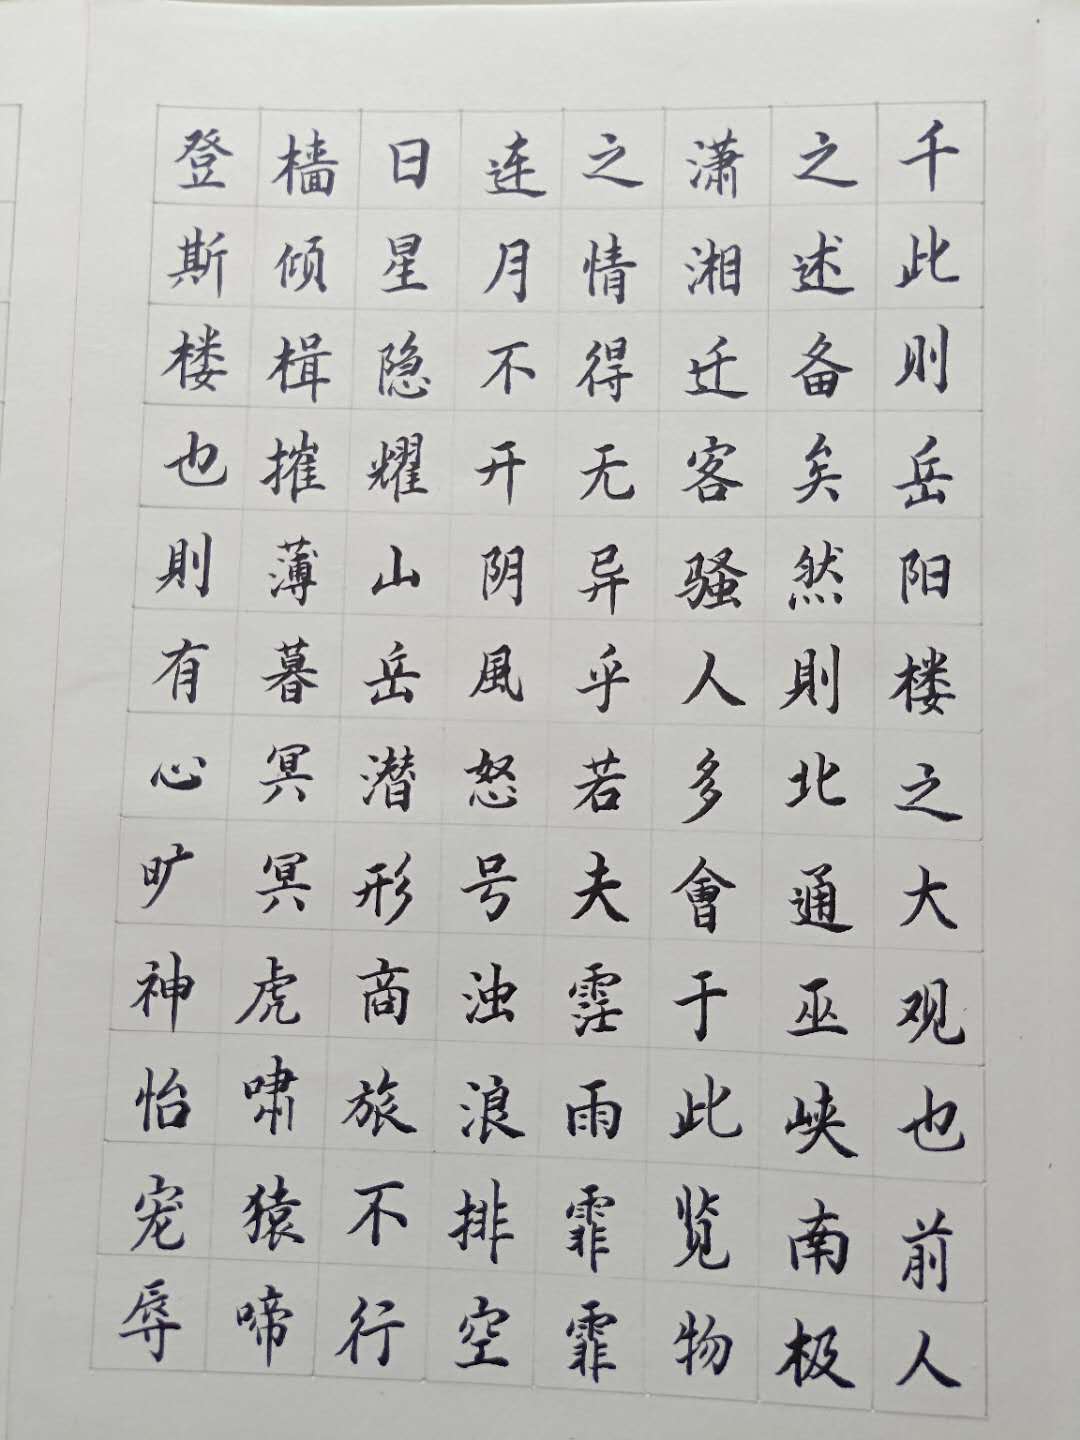 千此则岳阳楼之大观也前人
之述备矣然則北通巫峡南极
潇湘迁客骚人多會于此览物
之情得无异乎若夫霪雨霏霏
连月不开阴風怒号浊浪排空
日星隐耀山岳潜形商旅不行
樯倾楫摧薄暮冥冥虎啸猿啼
登斯楼也則有心旷神怡宠辱